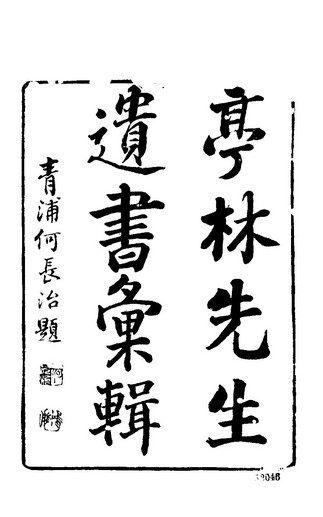 亭林先生
遺書彙輯
青浦何長治題